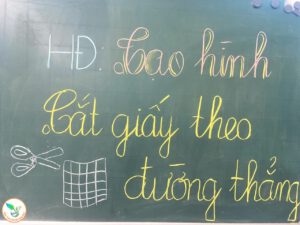 HĐ: Tạo hình
Cắt giấy theo
đường thẳng